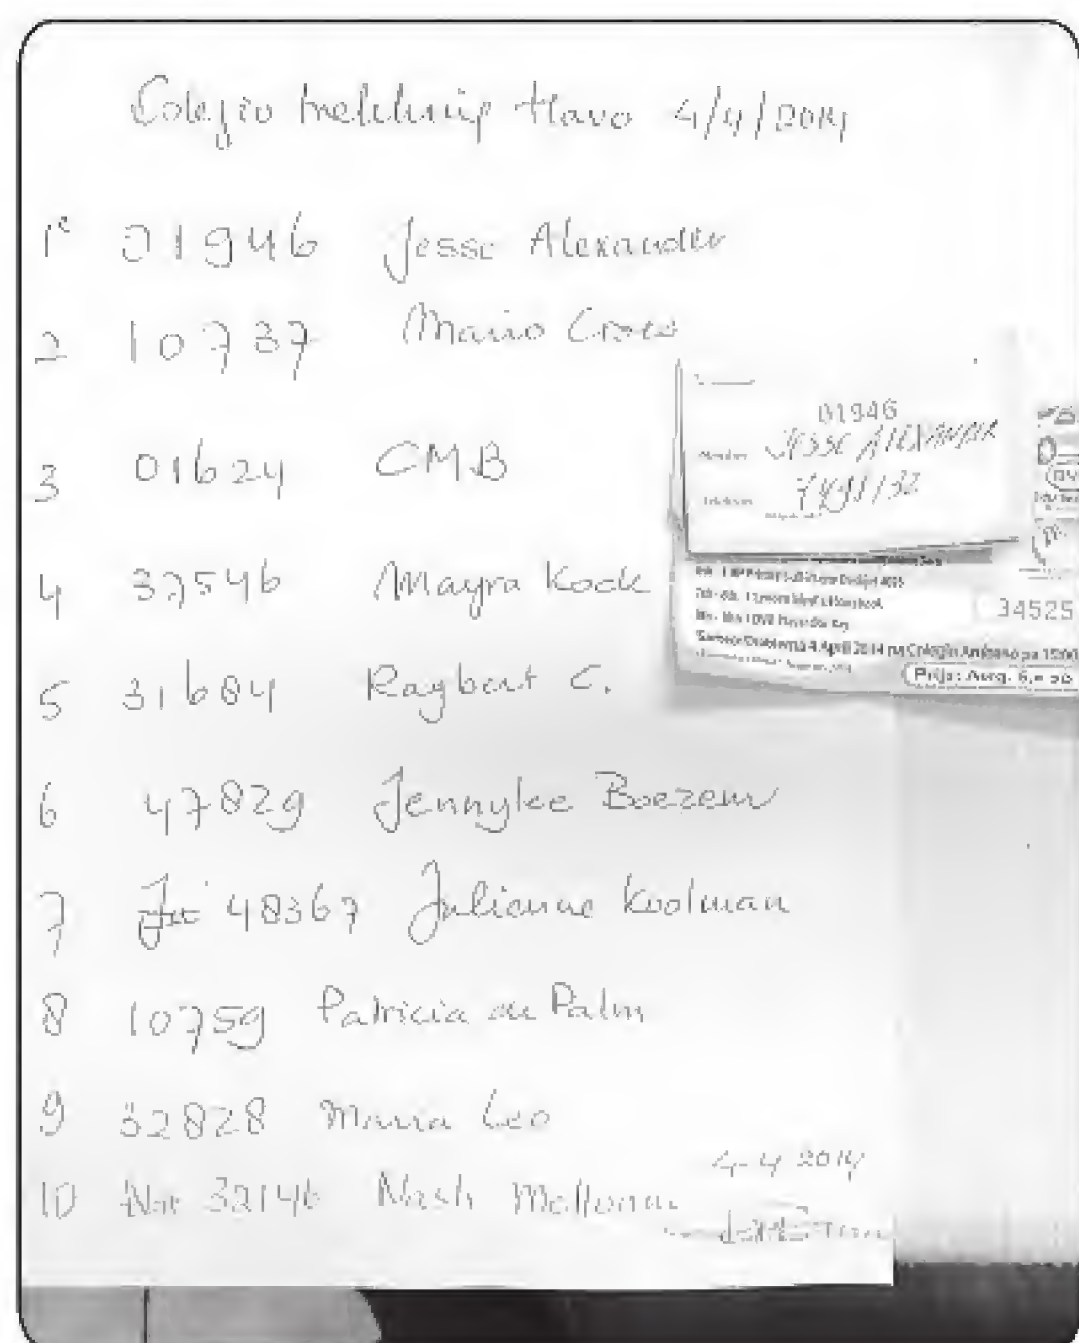 Colegio trekking Havo 4/4/2014
1e 01946 Jesse Alexander
2 10737 Mario Croes
3 01624 CMB
4 37546 Mayra Kock
5 31684 Raybert C.
6 47829 Jennylee Boezem
7 48367 Julienne Koolman
8 10759 Patricia de Palm
9 32828 Maria Leo
10 32146 Nash
4-4 2014
01946
JESSE ALEXANDER
7491132
34525
4 April 2014 na Colegio Arubano pa 15:00
Prijs: Awg. 5,= pb